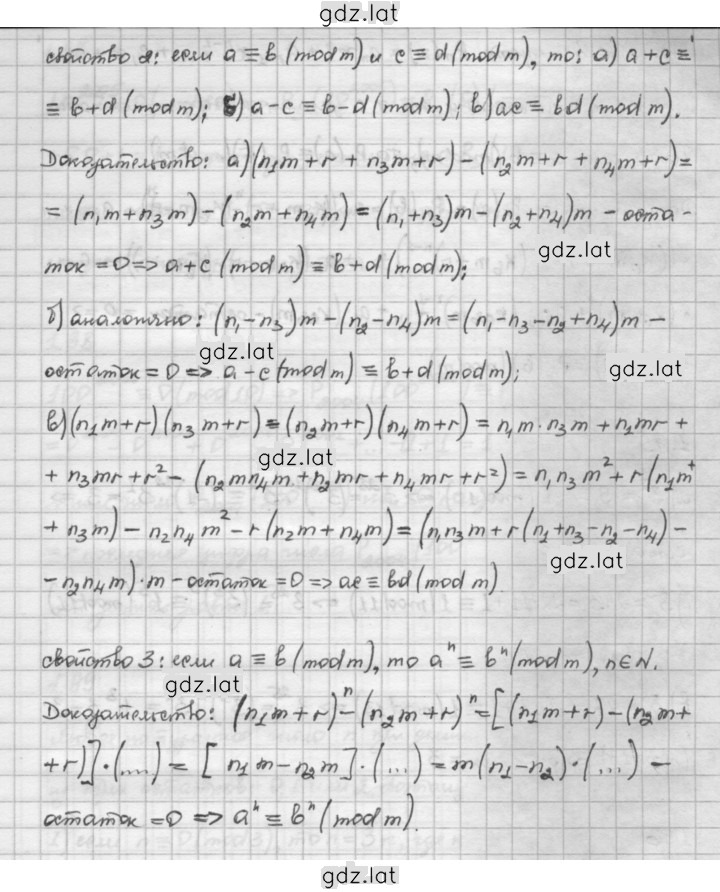 gdz.lat
свойство 2: если a ≡ b (mod m) и c ≡ d (mod m), то: а) a+c ≡
≡ b+d (mod m); б) a-c ≡ b-d (mod m); в) ac ≡ bd (mod m).
Доказательство: а) (n₁m+r + n₃m+r) - (n₂m+r + n₄m+r) =
= (n₁m+n₃m) - (n₂m+n₄m) = (n₁+n₃)m - (n₂+n₄)m - оста-
gdz.lat
ток = 0 => a+c (mod m) ≡ b+d (mod m);
б) аналогично: (n₁-n₃)m - (n₂-n₄)m = (n₁-n₃-n₂+n₄)m -
gdz.lat
остаток = 0 => a-c (mod m) ≡ b+d (mod m);
gdz.lat
в) (n₁m+r)(n₃m+r) = (n₂m+r)(n₄m+r) = n₁m·n₃m + n₁mr +
gdz.lat
+ n₃mr + r² - (n₂mn₄m + n₂mr + n₄mr + r²) = n₁n₃m² + r(n₁m +
+ n₃m) - n₂n₄m² - r(n₂m+n₄m) = (n₁n₃m + r(n₁+n₃-n₂-n₄) -
gdz.lat
- n₂n₄m)·m - остаток = 0 => ac ≡ bd (mod m)
свойство 3: если a ≡ b (mod m), то aⁿ ≡ bⁿ (mod m), n∈N.
gdz.lat
Доказательство: (n₁m+r)ⁿ - (n₂m+r)ⁿ = [(n₁m+r) - (n₂m+
+r)]·(....) = [n₁m-n₂m]·(...) = m(n₁-n₂)·(...) -
остаток = 0 => aⁿ ≡ bⁿ (mod m).
gdz.lat